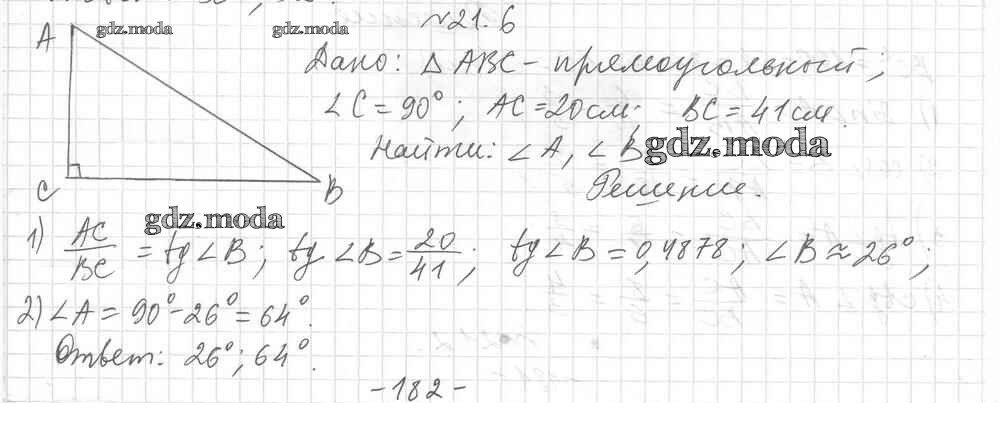 gdz.moda gdz.moda №21.6
A
Дано: △ ABC - прямоугольный;
∠C = 90°; AC = 20см; BC = 41см.
Найти: ∠A, ∠B gdz.moda
C B Решение.
gdz.moda
1) AC/BC = tg∠B; tg∠B = 20/41; tg∠B = 0,4878; ∠B ≈ 26°;
2) ∠A = 90° - 26° = 64°.
Ответ: 26°; 64°.
- 182 -